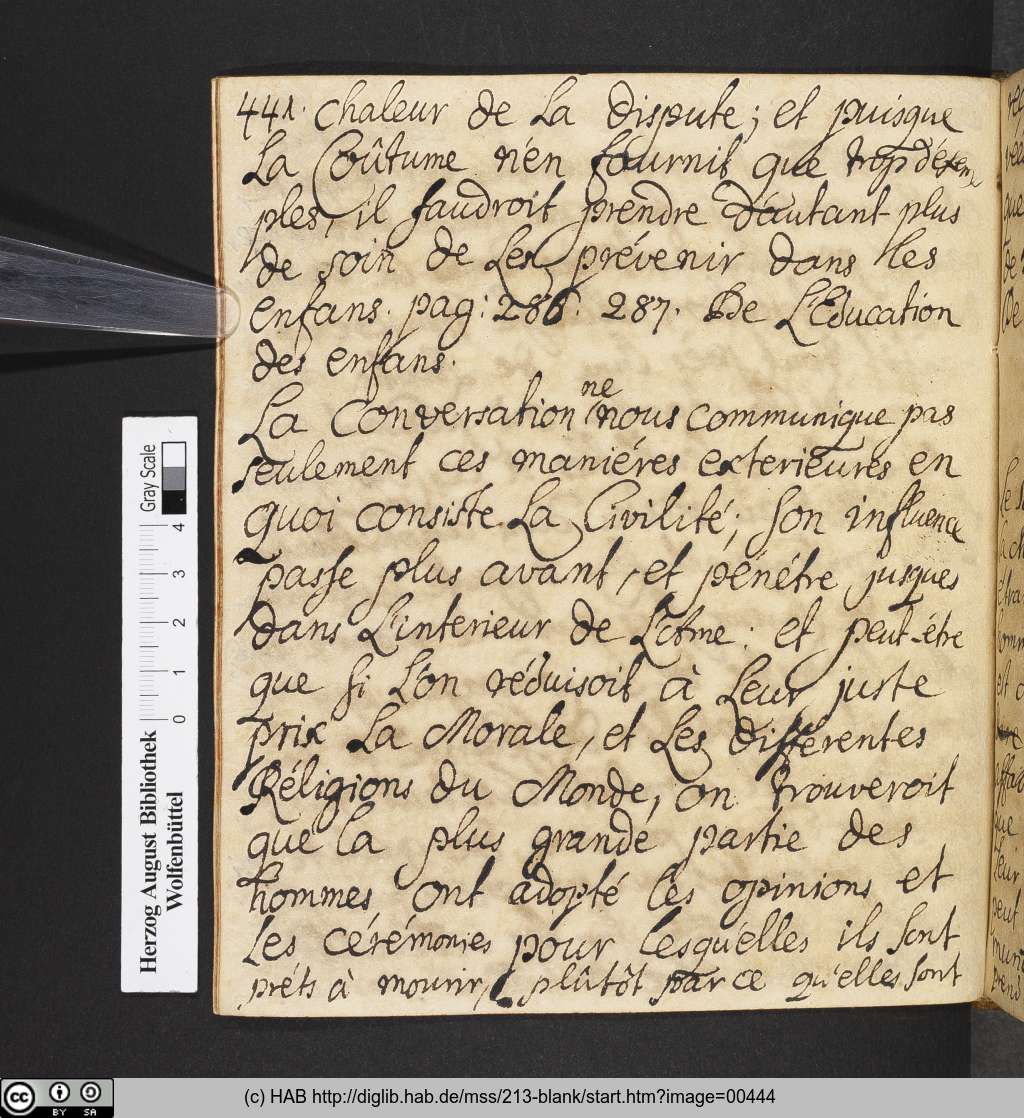 441. chaleur de La Dispute; et puisque
La Coûtume n'en fournit que trop d'éxem
ples, il faudroit prendre d'autant plus
de soin de Les prévenir dans les
enfans. pag: 286. 287. De L'Education
des enfans.
La Conversation ne nous communique pas
seulement ces maniéres exterieures en
quoi consiste La Civilité; son influence
passe plus avant, et pénétre jusques
dans L'interieur de L'Ame: et peut-étre
que si L'on réduisoit à Leur juste
prix La Morale, et Les differentes
Réligions du Monde, on trouveroit
que la plus grande partie des
hommes ont adopté les opinions et
Les cérémonies pour lesquelles ils sont
préts à mourir, plûtôt parce qu'elles sont
Gray Scale
0 1 2 3 4
Herzog August Bibliothek
Wolfenbüttel
cc BY SA
(c) HAB http://diglib.hab.de/mss/213-blank/start.htm?image=00444